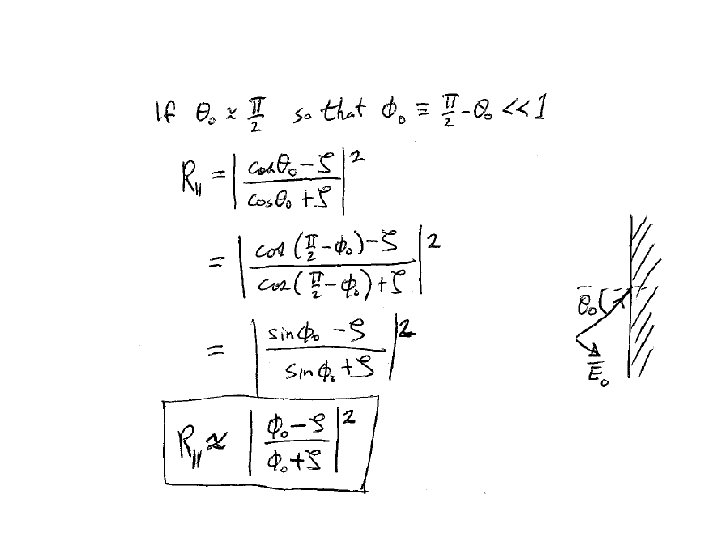 If θ₀ ≈ π/2 so that φ₀ ≡ π/2 - θ₀ << 1
R_∥ = | (cosθ₀ - ζ) / (cosθ₀ + ζ) |²
= | (cos(π/2 - φ₀) - ζ) / (cos(π/2 - φ₀) + ζ) |²
= | (sinφ₀ - ζ) / (sinφ₀ + ζ) |²
R_∥ ≈ | (φ₀ - ζ) / (φ₀ + ζ) |²
θ₀
E₀